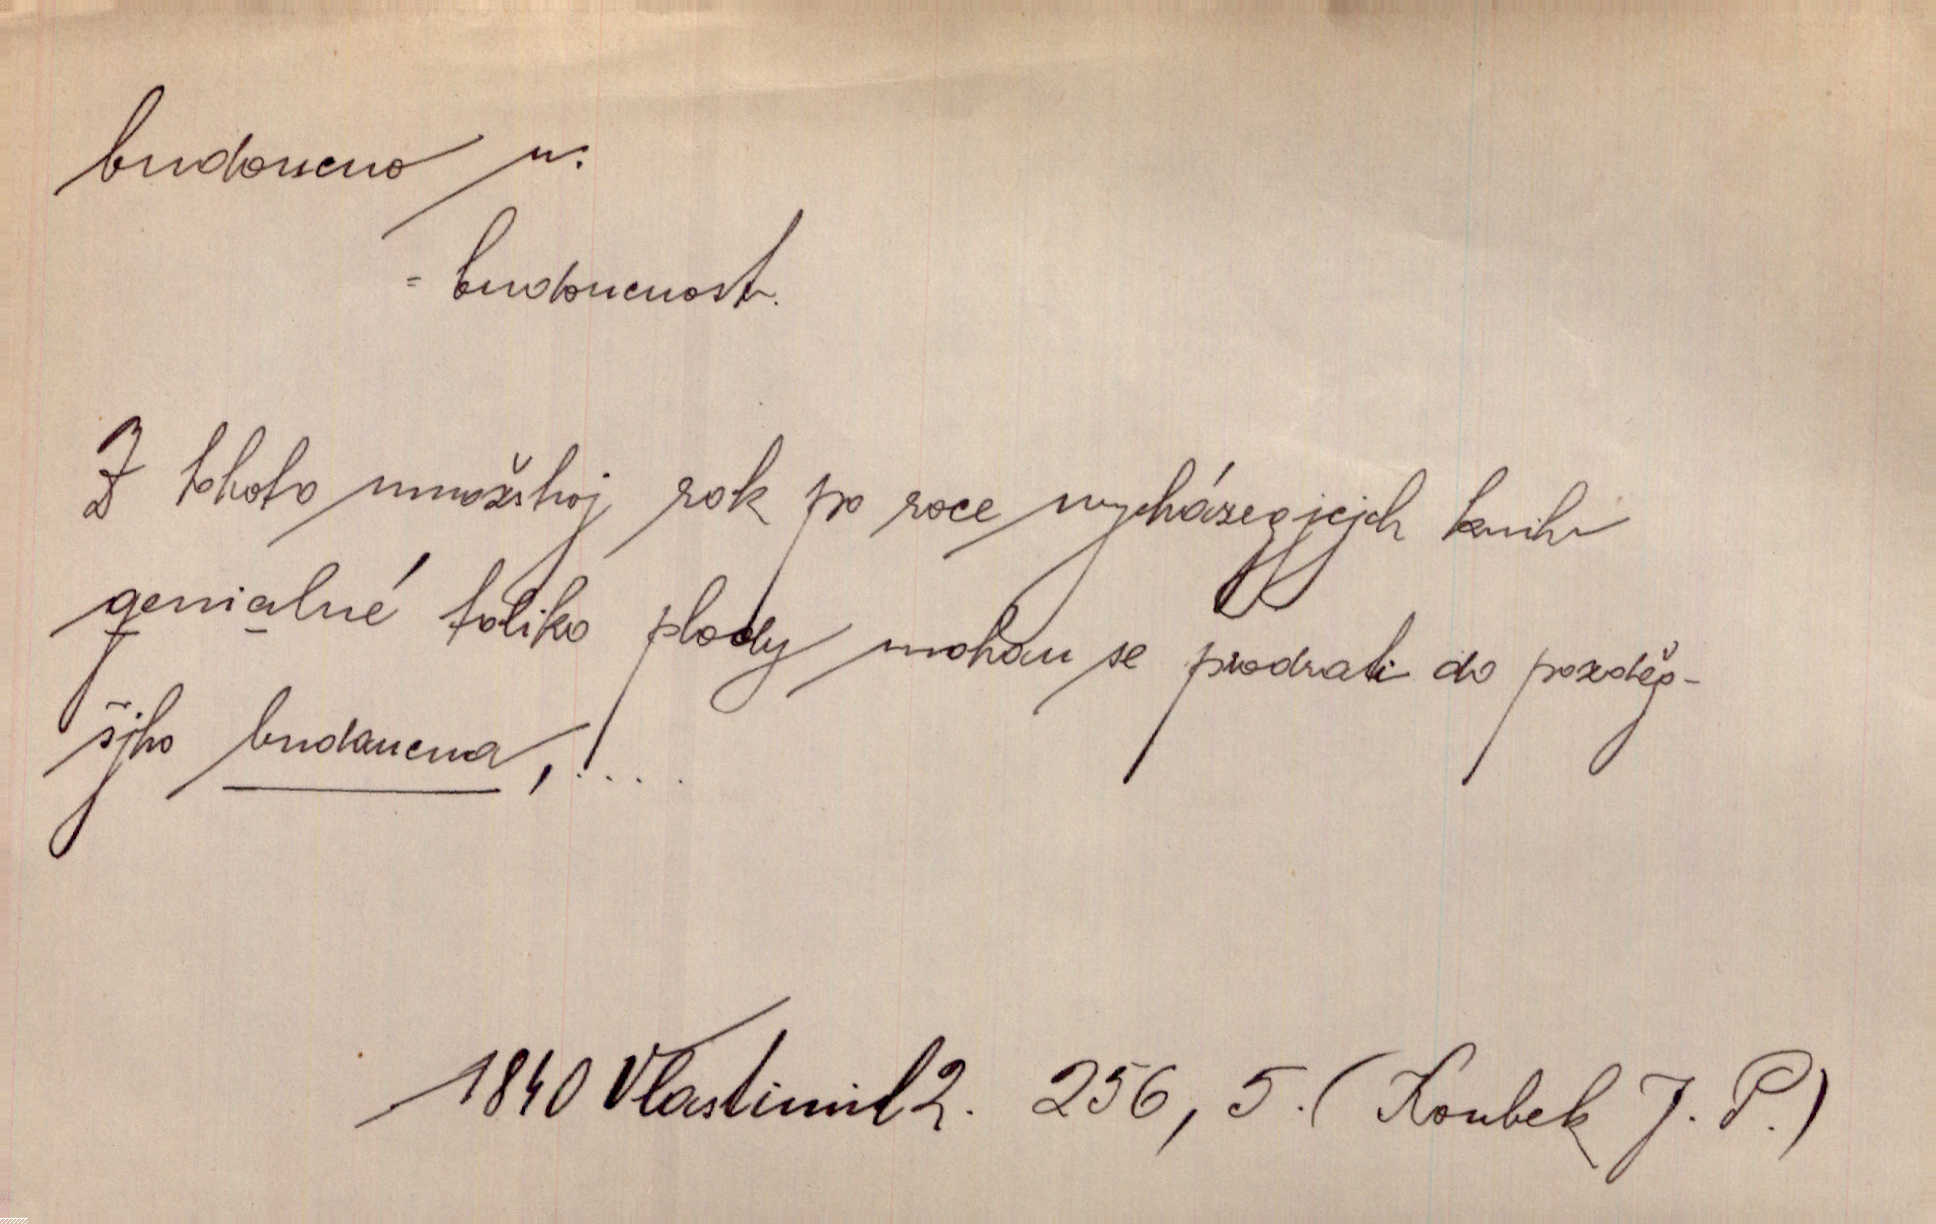 budoucno n.
= budoucnost.
Z tohoto množstwj rok po roce wycházegjcjch knih
genialné toliko plody mohau se prodrati do pozděg-
šjho budaucna, ....
1840 Vlastimil 2. 256, 5. (Koubek J. P.)